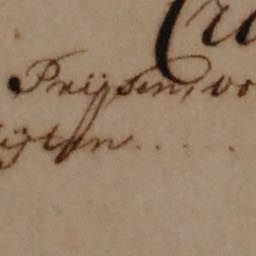 Prijsen, vo
ijten.....